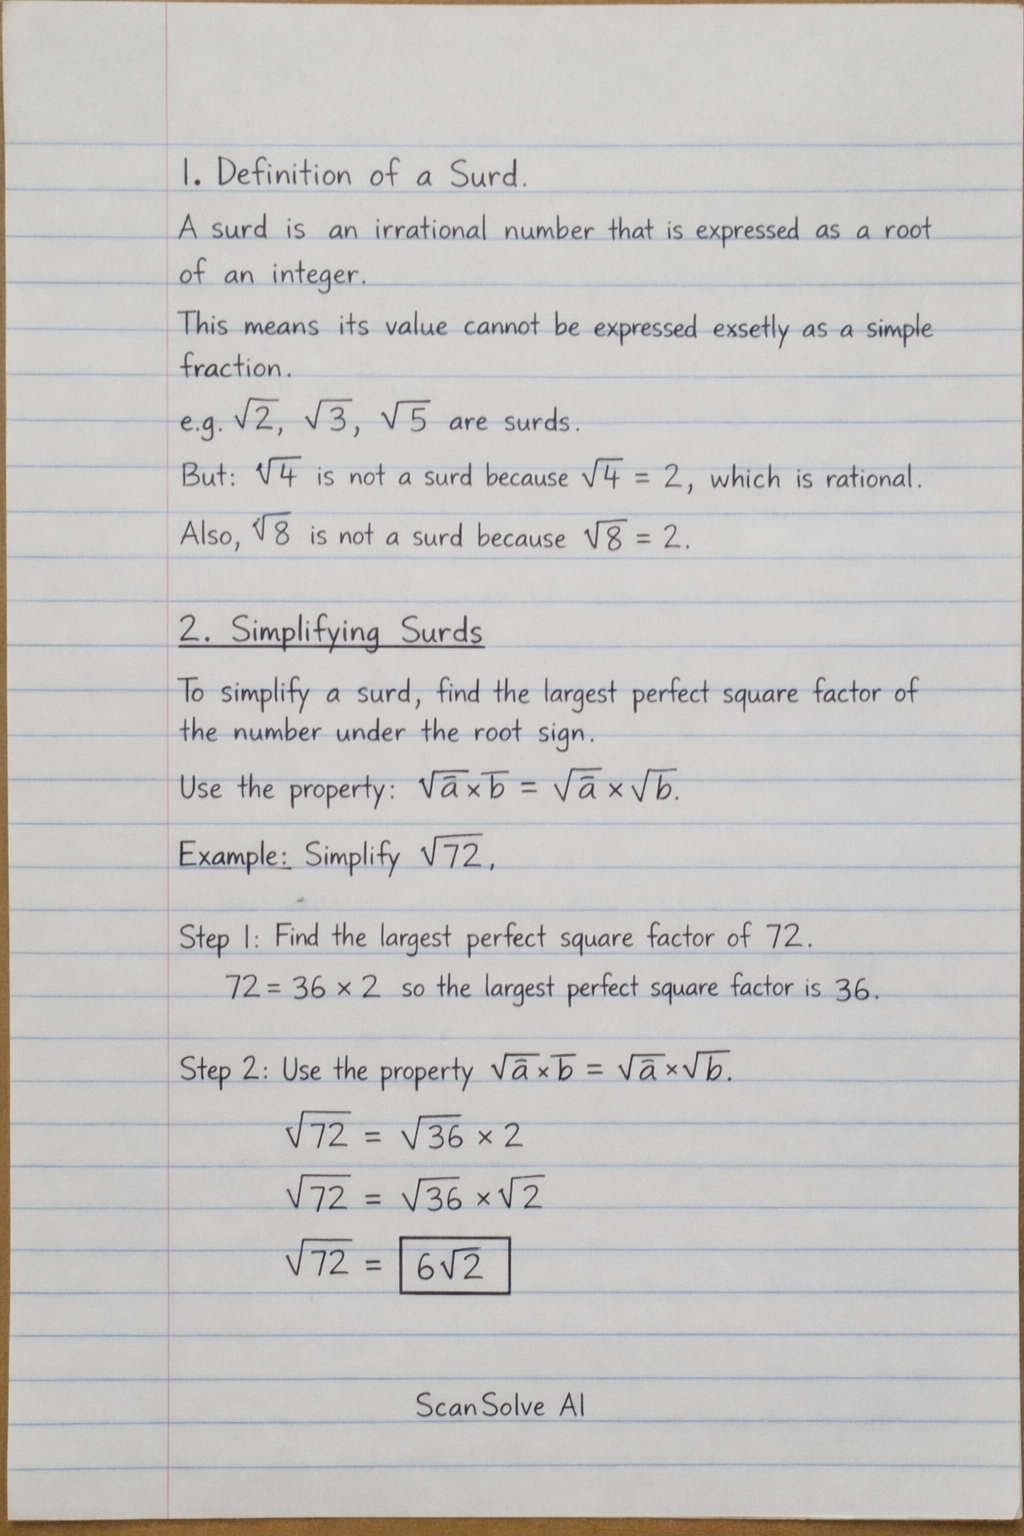 1. Definition of a Surd.
A surd is an irrational number that is expressed as a root
of an integer.
This means its value cannot be expressed exsetly as a simple
fraction.
e.g. √2, √3, √5 are surds.
But: √4 is not a surd because √4 = 2, which is rational.
Also, √8 is not a surd because √8 = 2.
2. Simplifying Surds
To simplify a surd, find the largest perfect square factor of
the number under the root sign.
Use the property: √a × b = √a × √b.
Example: Simplify √72,
Step 1: Find the largest perfect square factor of 72.
72 = 36 × 2 so the largest perfect square factor is 36.
Step 2: Use the property √a × b = √a × √b.
√72 = √36 × 2
√72 = √36 × √2
√72 = 6√2
ScanSolve AI